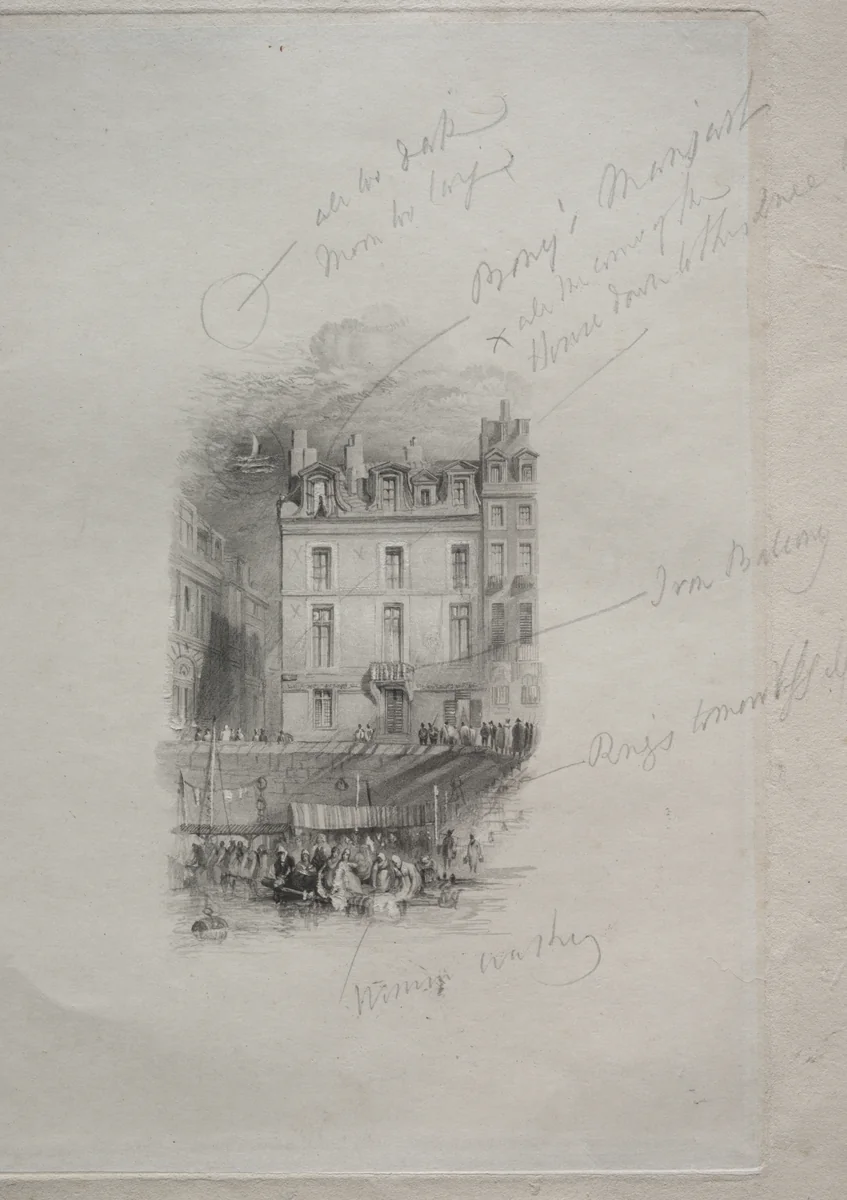 all too dark
Moon too large
Bony's Mansart
x all the corner of the
House down to this line
Iron Balcony
Rings to moor
Women washing